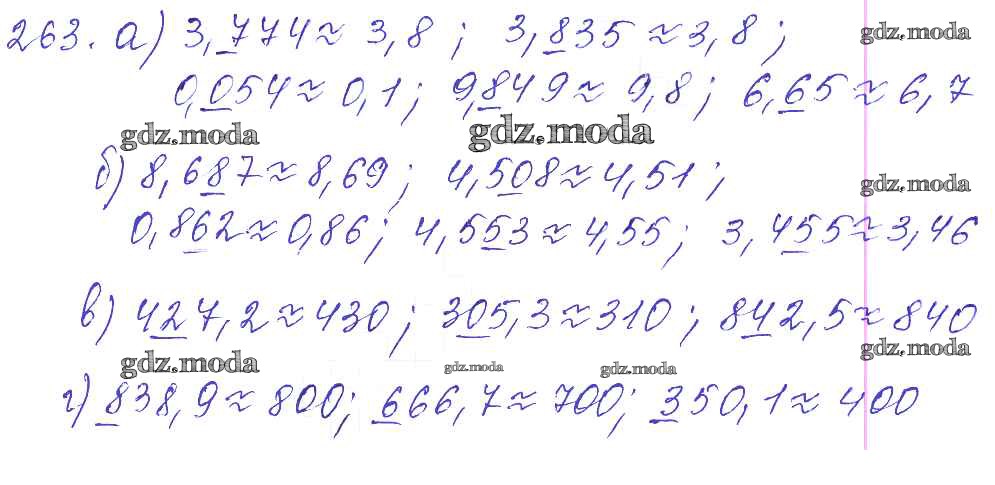 263. а) 3,774 ≈ 3,8 ; 3,835 ≈ 3,8 ;
gdz.moda
0,054 ≈ 0,1 ; 9,849 ≈ 9,8 ; 6,65 ≈ 6,7
gdz.moda gdz.moda
б) 8,687 ≈ 8,69 ; 4,508 ≈ 4,51 ;
gdz.moda
0,862 ≈ 0,86 ; 4,553 ≈ 4,55 ; 3,455 ≈ 3,46
в) 427,2 ≈ 430 ; 305,3 ≈ 310 ; 842,5 ≈ 840
gdz.moda gdz.moda gdz.moda gdz.moda
г) 838,9 ≈ 800 ; 666,7 ≈ 700 ; 350,1 ≈ 400